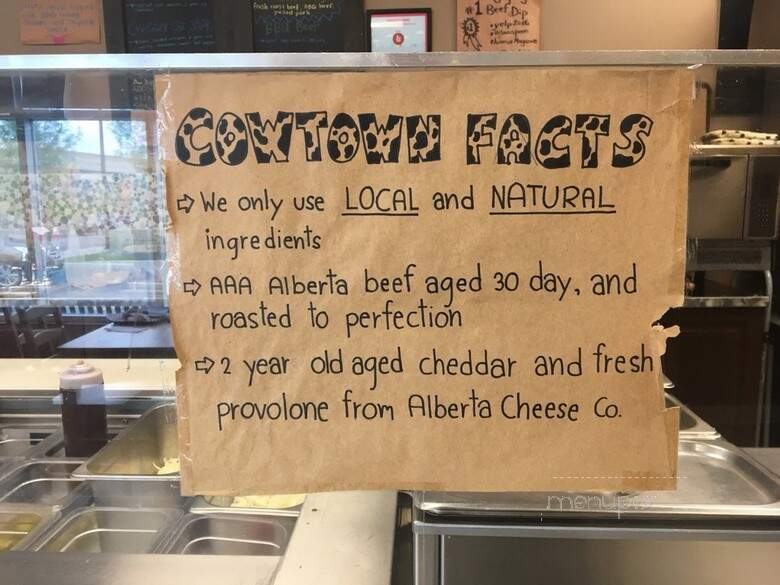 #1 Beef Dip
COWTOWN FACTS
⇨ We only use LOCAL and NATURAL
ingredients
⇨ AAA Alberta beef aged 30 day, and
roasted to perfection
⇨ 2 year old aged cheddar and fresh
provolone from Alberta Cheese Co.